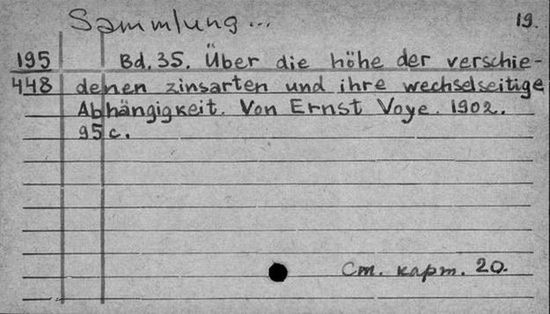 Sammlung... 19.
195 Bd. 35. Über die höhe der verschie-
448 denen zinsarten und ihre wechselseitige
Abhängigkeit. Von Ernst Voye. 1902.
95 c.
Ст. карт. 20.